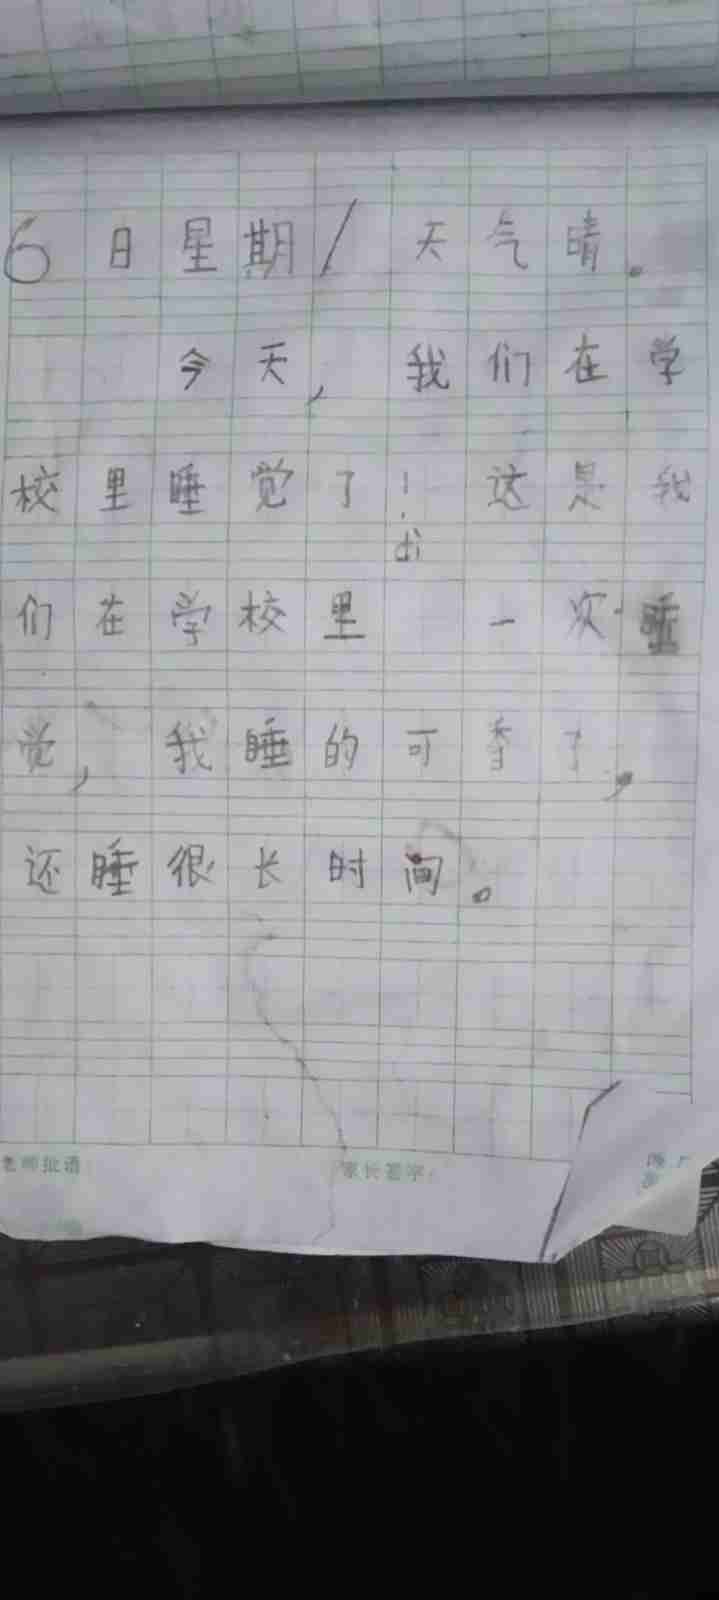 6日星期/天气晴。
今天,我们在学
校里睡觉了!这是我
dì
们在学校里 一次睡
觉,我睡的可香了,
还睡很长时间。
老师批语:
家长签字: